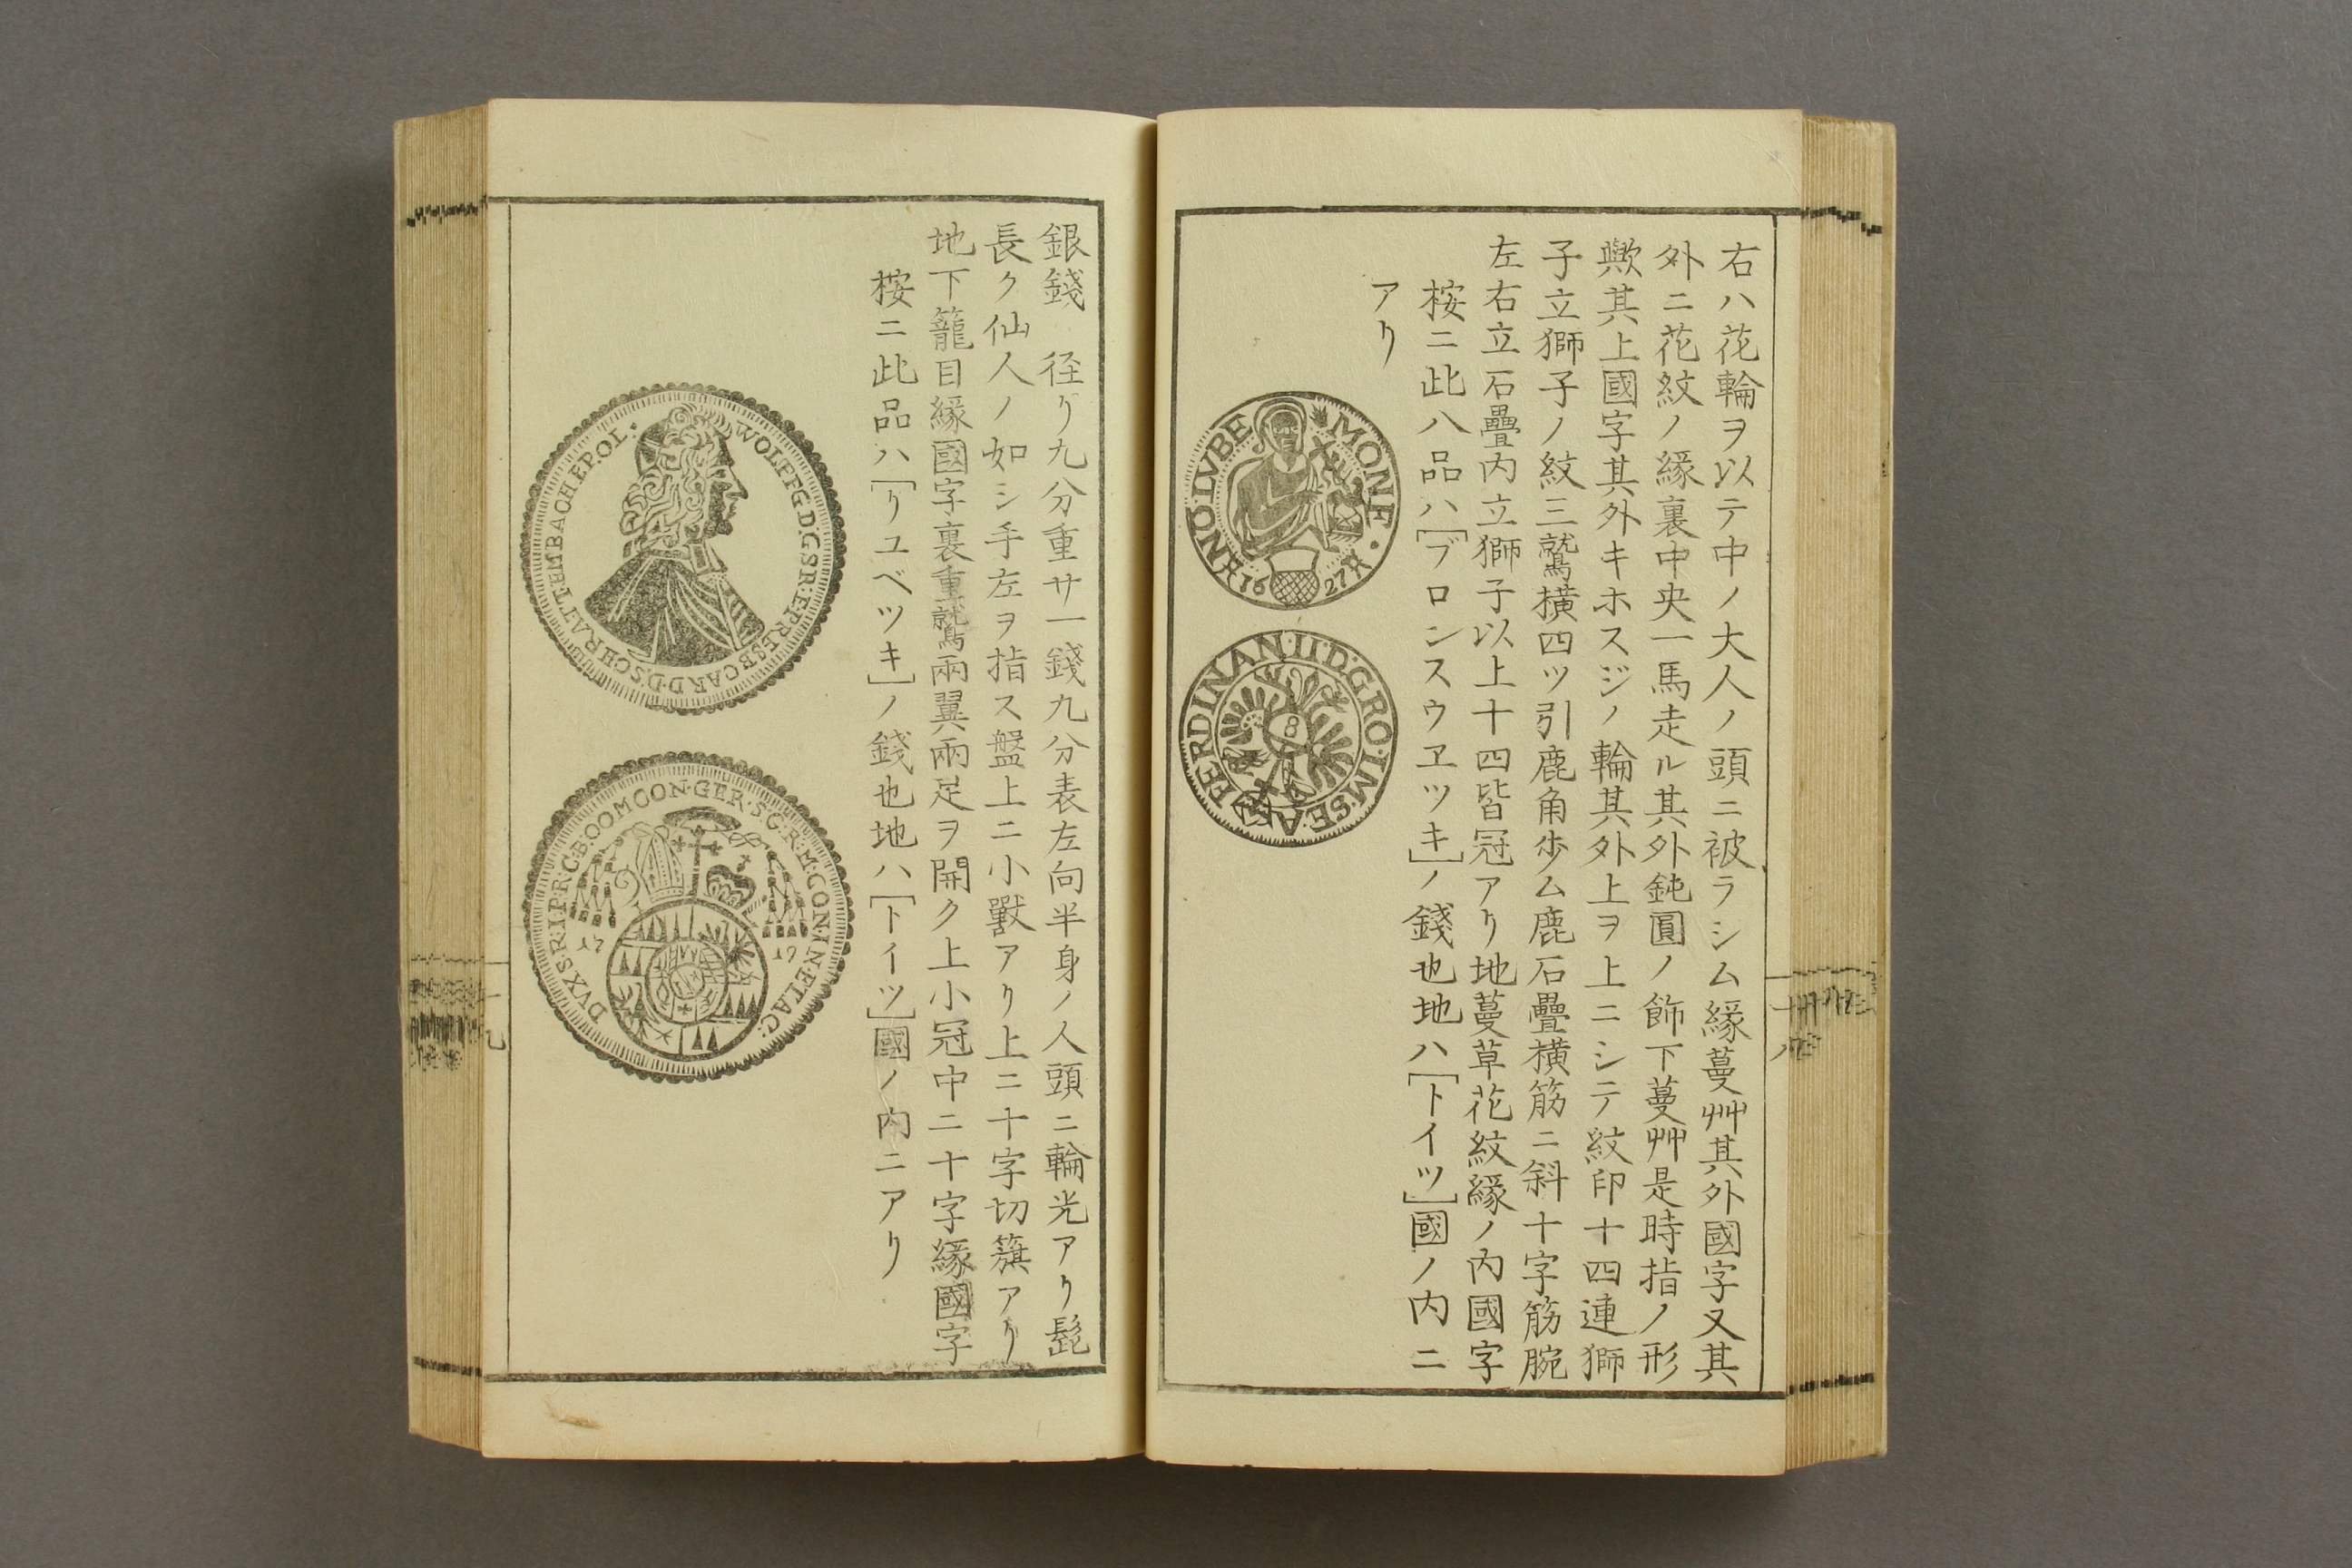 右ハ花輪ヲ以テ中ノ大人ノ頭ニ被ラシム縁蔓艸其外國字又其
外ニ花紋ノ縁裏中央一馬走ル其外鈍圓ノ飾下蔓艸是時指ノ形
歟其上國字其外キホスジノ輪其外上ヲ上ニシテ紋印十四連獅
子立獅子ノ紋三鷲横四ツ引鹿角歩ム鹿石疊横筋ニ斜十字筋腕
左右立石疊内立獅子以上十四皆冠アリ地蔓草花紋縁ノ内國字
桉ニ此八品ハ[ブロンスウヱツキ]ノ錢也地ハ[トイツ]國ノ内ニ
アリ
MONE·NO·LVBE
16 27
FERDINAN·II·D:G·RO·IM·SE·A
8
十八
銀錢 径リ九分重サ一錢九分表左向半身ノ人頭ニ輪光アリ髭
長ク仙人ノ如シ手左ヲ指ス盤上ニ小獸アリ上ニ十字切籏アリ
地下籠目縁國字裏重鷲兩翼兩足ヲ開ク上小冠中ニ十字縁國字
桉ニ此品ハ[リユベツキ]ノ錢也地ハ[トイツ]國ノ内ニアリ
WOLFFG·D:G·S·R·E·PRESB·CARD·D:SCHRATTEMBACH·EP·OL·
DVX·S·R·I·PR·C·BOOM·CON·GER·S·C·R·M·CON·IN·ET·AC:
17 19
十九